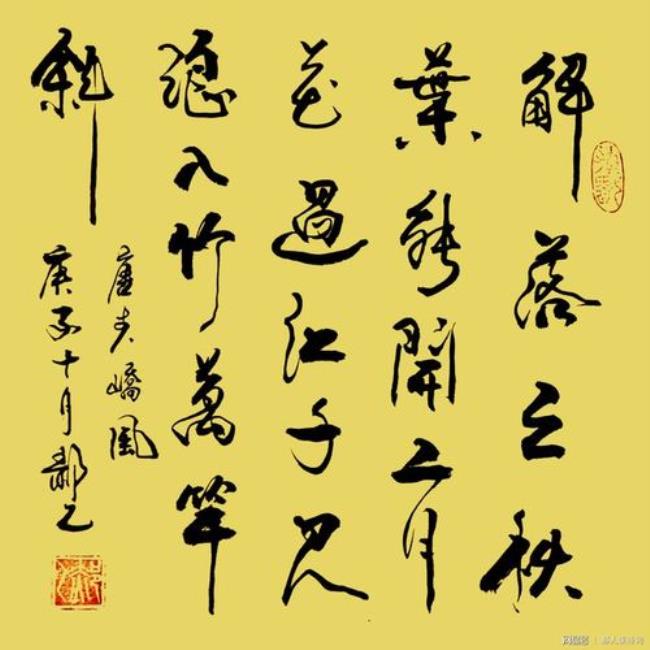 解落三秋
葉能開二月
花過江千尺
浪入竹萬竿
斜
唐李嶠風
庚子十月